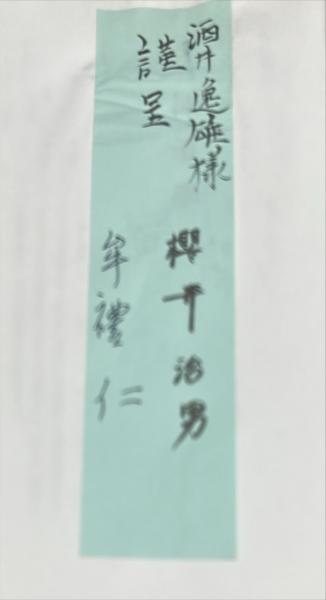 酒井逸雄様
謹呈
櫻井治男
牟禮仁